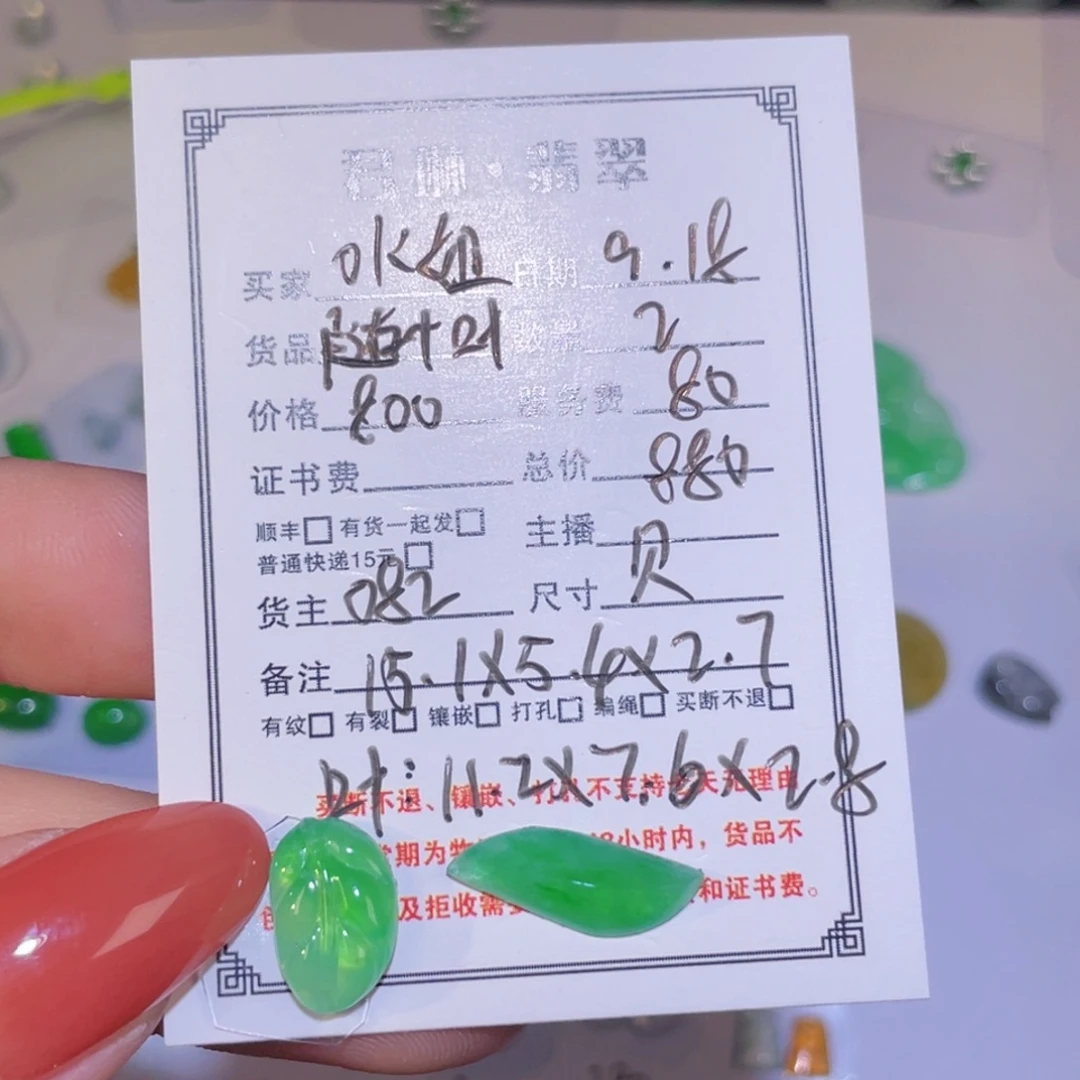 翡翠
买家 水姐 日期 9.18
货品 随+叶 数量 2
价格 800 服务费 80
证书费 总价 880
顺丰 有货一起发 主播 贝
普通快递15元
货主 082 尺寸
备注 15.1X5.6X2.7
有纹 有裂 镶嵌 打孔 编绳 买断不退
叶:11.2X7.6X2.8
买断不退、镶嵌、打孔不支持 天无理由
期为 小时内，货品不
及拒收需 和证书费。